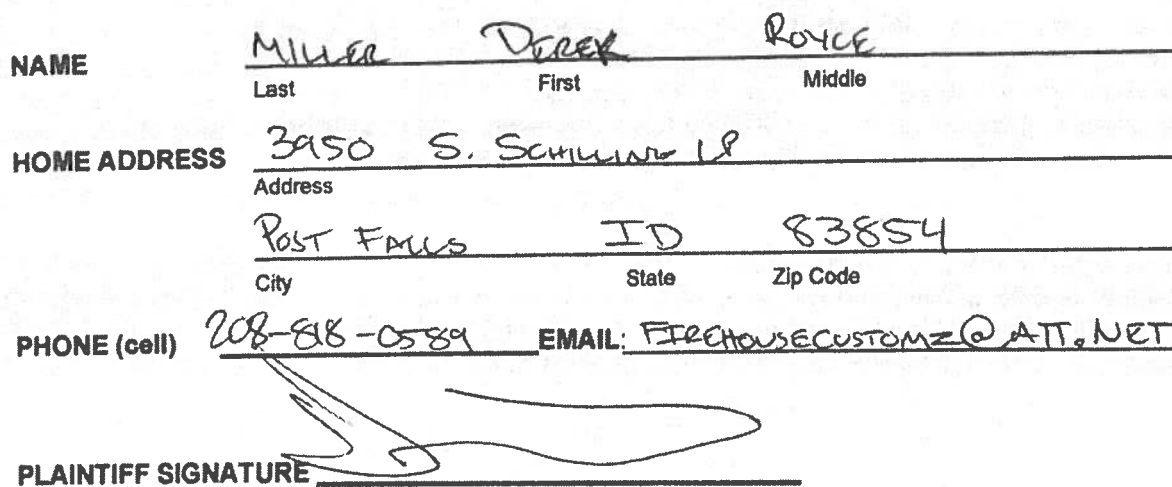 NAME MILLER DEREK ROYCE
Last First Middle
HOME ADDRESS 3950 S. SCHILLING LP
Address
POST FALLS ID 83854
City State Zip Code
PHONE (cell) 208-818-0589 EMAIL: FIREHOUSECUSTOMZ@ATT.NET
PLAINTIFF SIGNATURE